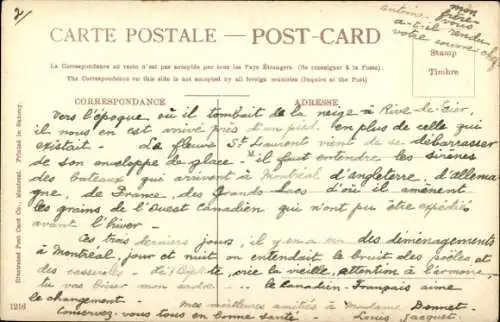 2/
mon
antoine frère vous
a-t-il rendu
votre
CARTE POSTALE — POST-CARD
La Correspondance au recto n'est pas acceptée par tous les Pays Étrangers. (Se renseigner à la Poste).
The Correspondence on this side is not accepted by all foreign countries (Inquire at the Post)
Stamp
Timbre
CORRESPONDANCE ADRESSE
Vers l'époque où il tombait de la neige à Rive-de-Gier,
il nous en est arrivé près d'un pied, en plus de celle qui
existait - Le fleuve St Laurent vient de se débarrasser
de son enveloppe de glace - il faut entendre les sirènes
des bateaux qui arrivent à Montréal d'Angleterre, d'Allema-
gne, de France, des Grands Lacs d'où ils amènent
les grains de l'Ouest Canadien qui n'ont pu être expédiés
avant l'hiver -
Ces trois derniers jours, il y en a eu des déménagements
à Montréal, jour et nuit on entendait le bruit des poêles et
des casseroles - crie la vieille, attention à l'armoire,
tu vas briser mon - le Canadien-Français aime
le changement - Mes meilleures amitiés à Madame Bonnet -
Conservez-vous tous en bonne santé - Louis Jacquet
Illustrated Post Card Co., Montreal. Printed in Saxony.
1216